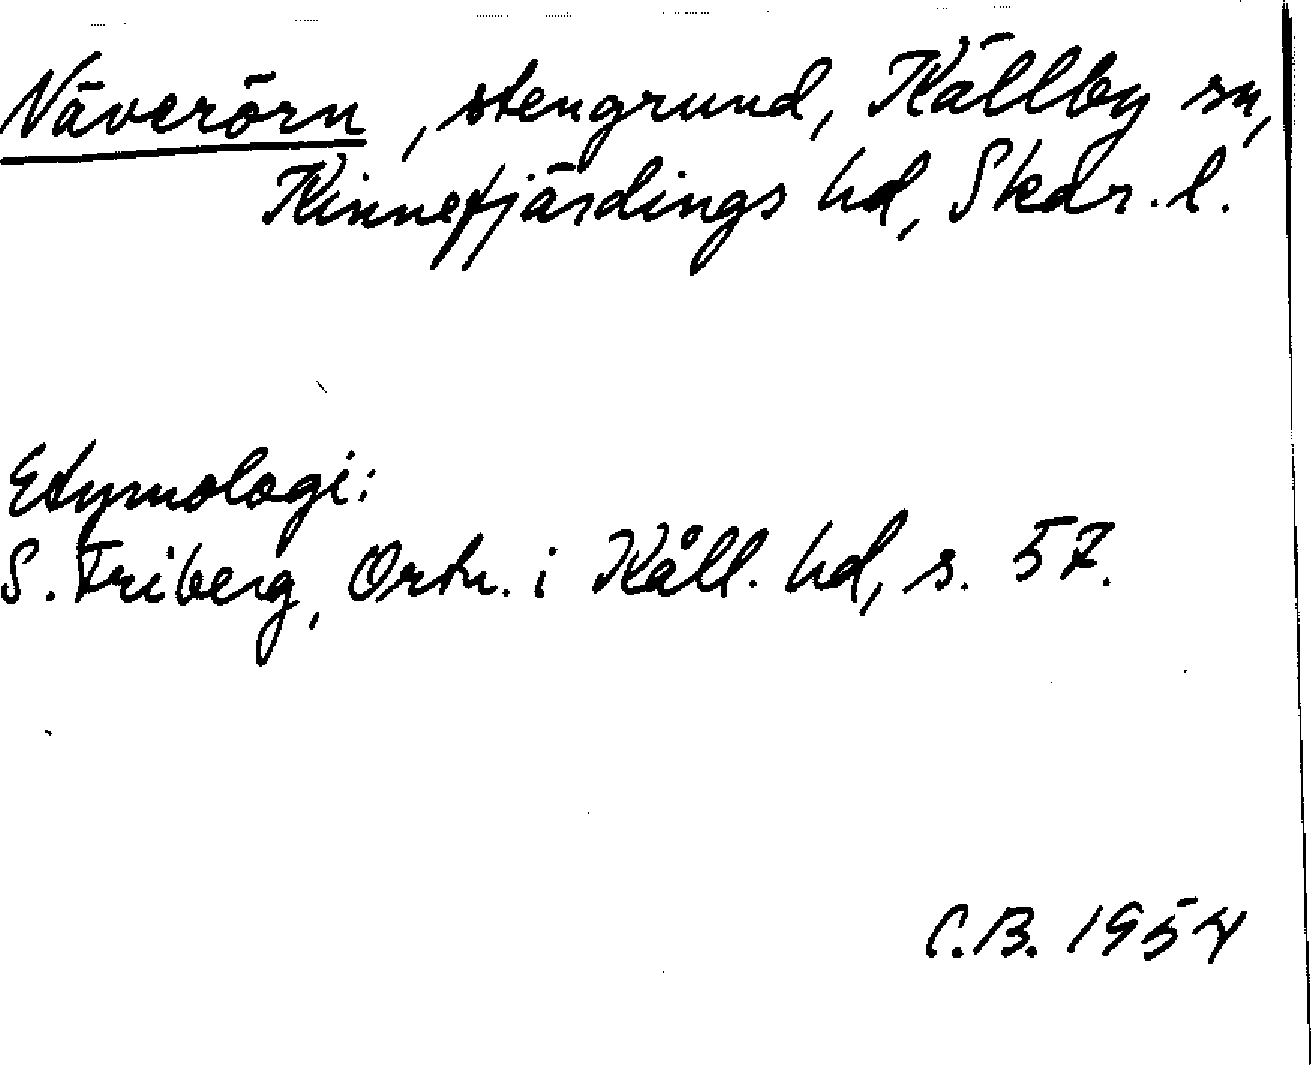 Näverörn, stengrund, Källby sn,
Kinnefjärdings hd, Skar. l.
Etymologi:
S. Friberg, Ortn. i Kåll. hd, s. 57.
C.B. 1954